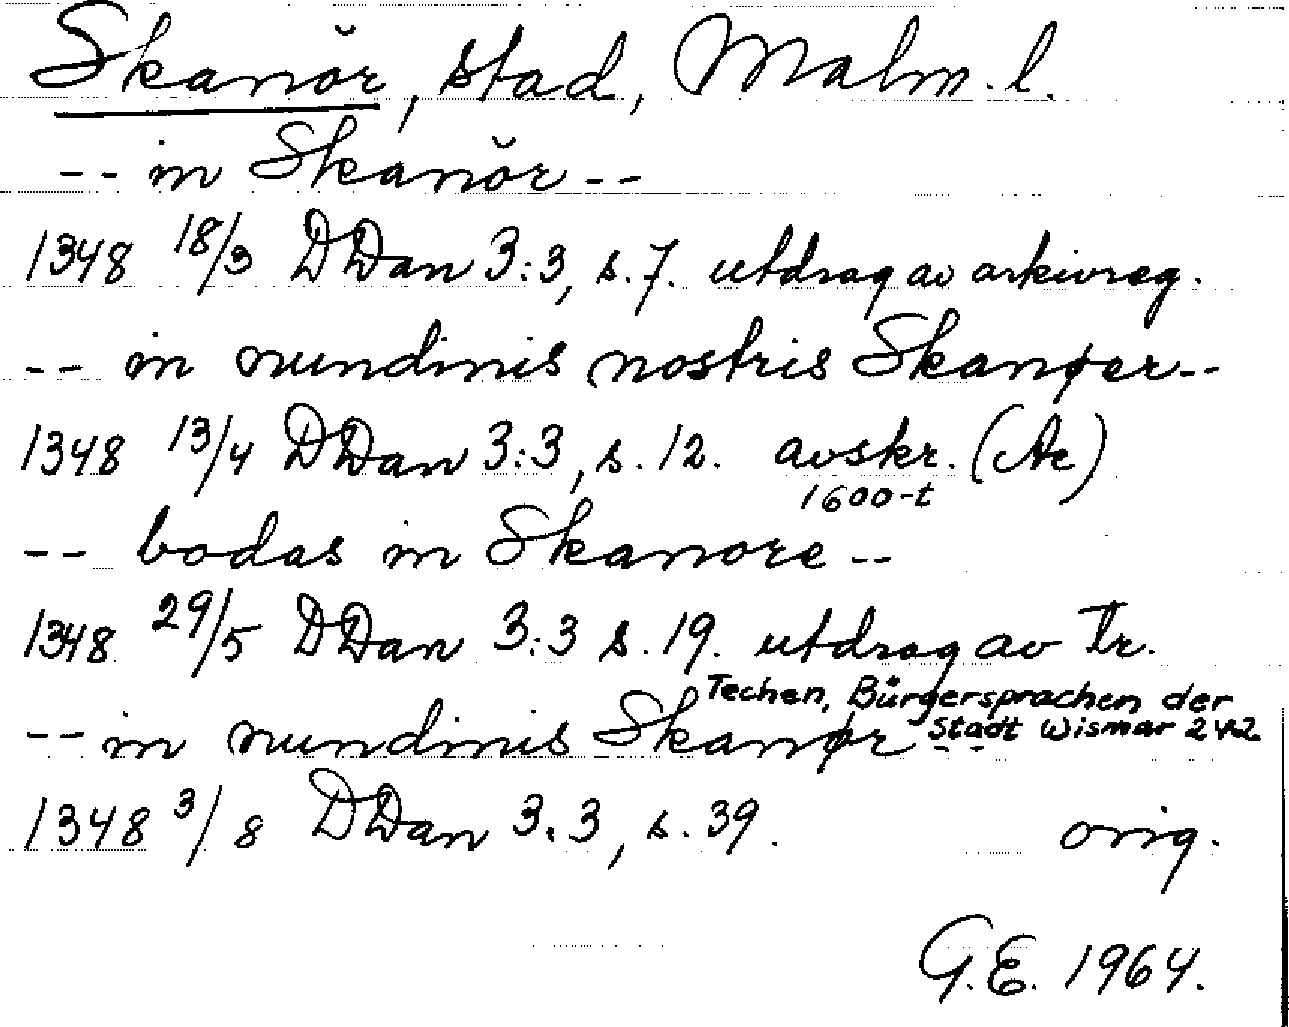 Skanör, stad, Malm. l.
-- in Skanör --
1348 18/3 DDan 3:3, s. 7. utdrag av arkivreg.
-- in nundinis nostris Skanøer --
1348 13/4 DDan 3:3, s. 12. avskr. (Ae)
1600-t
-- bodas in Skanore --
1348 29/5 DDan 3:3 s. 19. utdrag av Tr.
Techen, Bürgersprachen der
Stadt Wismar 242
-- in nundinis Skanør --
1348 3/8 DDan 3:3, s. 39. orig.
G.E. 1964.